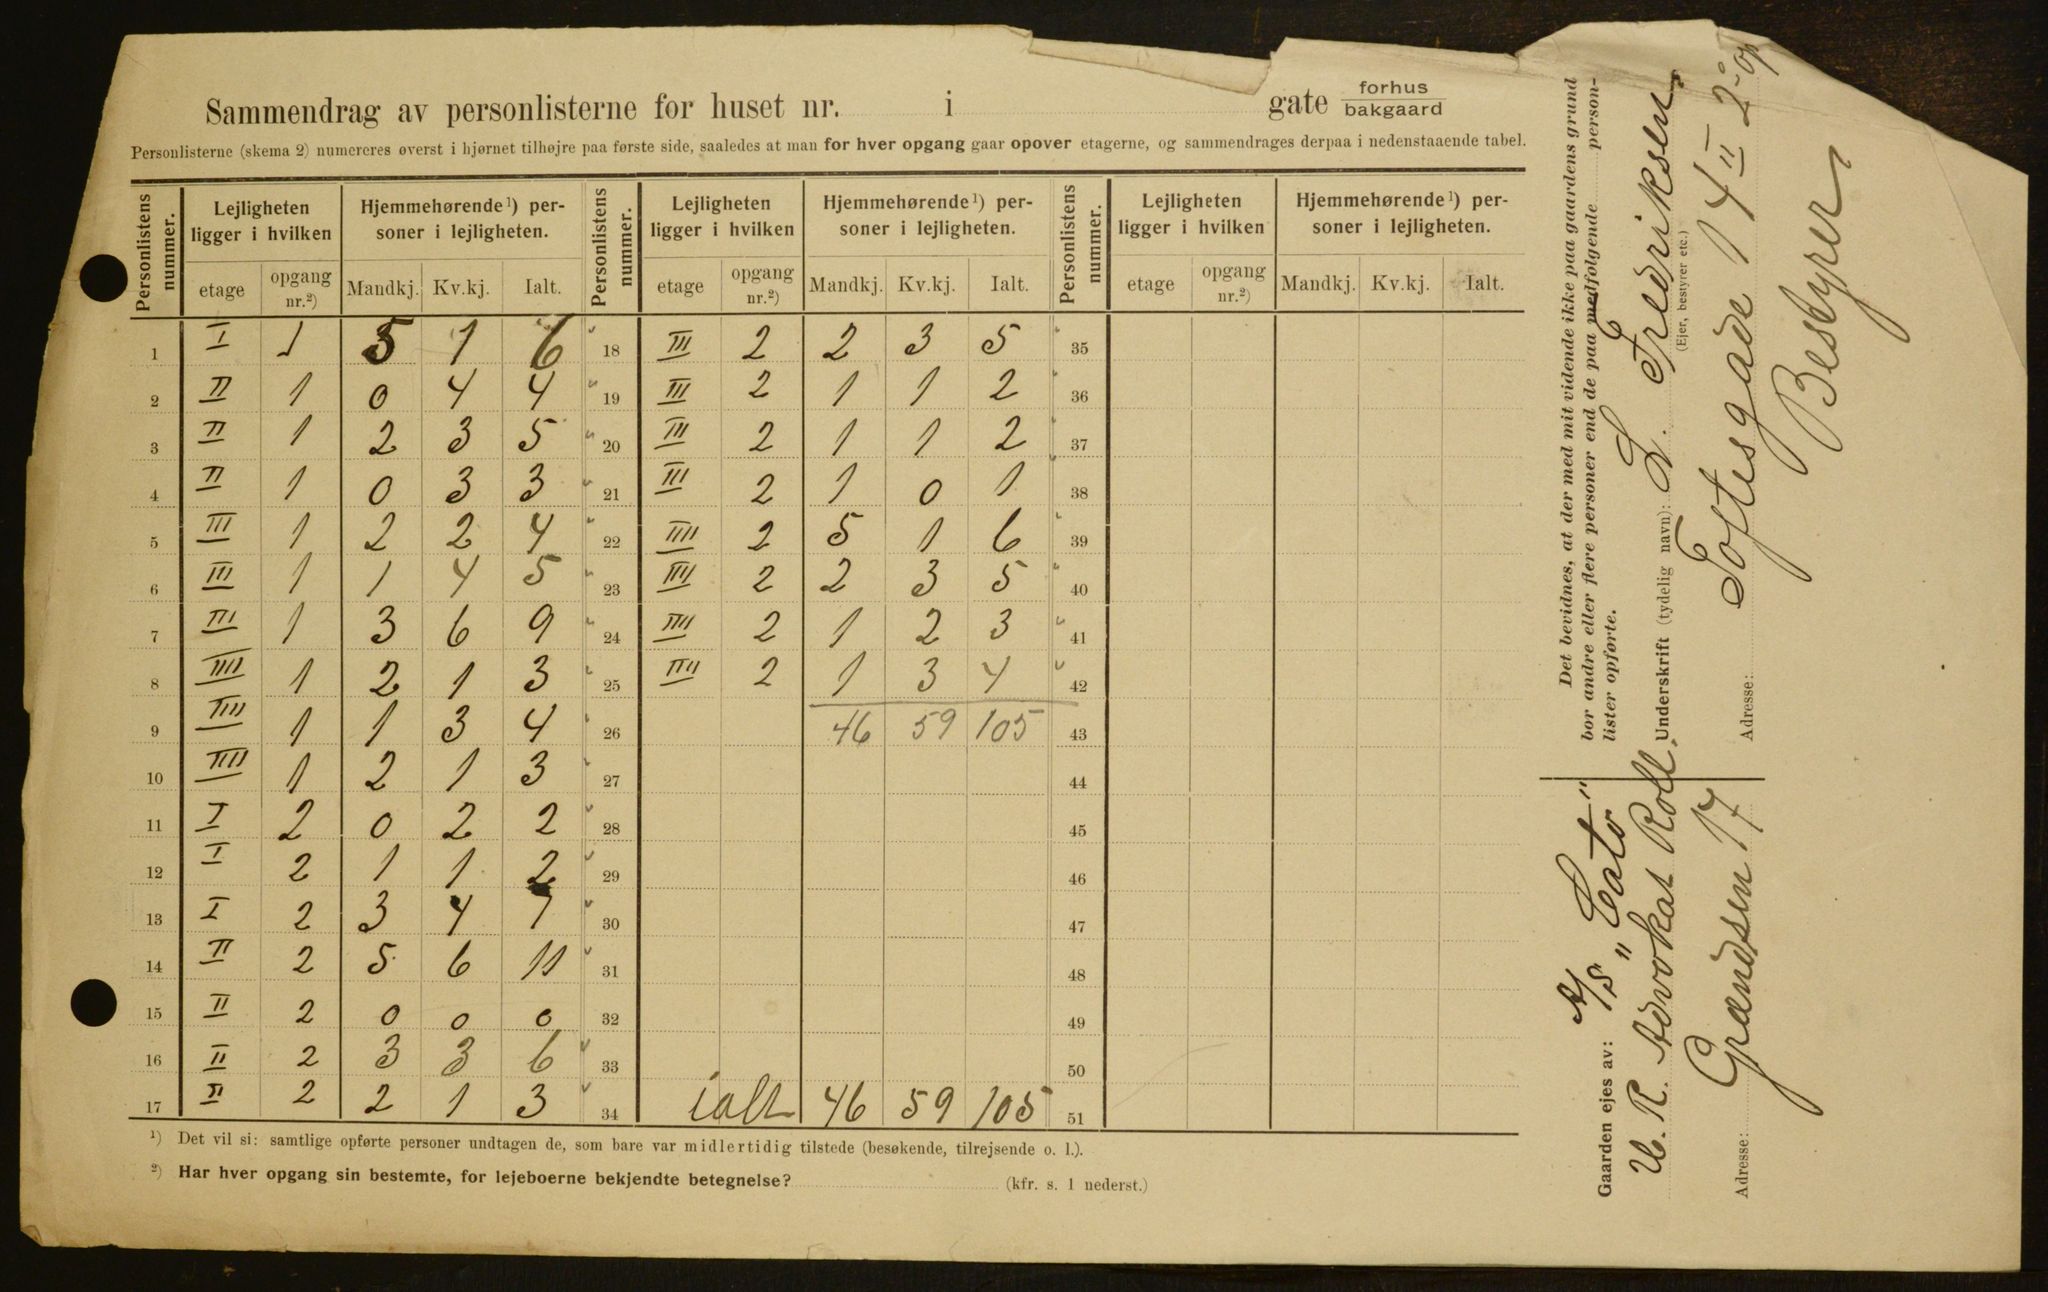 Sammendrag av personlisterne for huset nr. i gate forhus bakgaard
Personlisterne (skema 2) numereres øverst i hjørnet tilhøjre paa første side, saaledes at man for hver opgang gaar opover etagerne, og sammendrages derpaa i nedenstaaende tabel.
Personlistens nummer. Lejligheten ligger i hvilken Hjemmehørende 1) personer i lejligheten. Personlistens nummer. Lejligheten ligger i hvilken Hjemmehørende 1) personer i lejligheten. Personlistens nummer. Lejligheten ligger i hvilken Hjemmehørende 1) personer i lejligheten.
etage opgang nr.2) Mandkj. Kv.kj. Ialt. etage opgang nr.2) Mandkj. Kv.kj. Ialt. etage opgang nr.2) Mandkj. Kv.kj. Ialt.
1 I 1 5 1 6 18 III 2 2 3 5 35
2 II 1 0 4 4 19 III 2 1 1 2 36
3 II 1 2 3 5 20 III 2 1 1 2 37
4 II 1 0 3 3 21 III 2 1 0 1 38
5 III 1 2 2 4 22 IIII 2 5 1 6 39
6 III 1 1 4 5 23 IIII 2 2 3 5 40
7 III 1 3 6 9 24 IIII 2 1 2 3 41
8 IIII 1 2 1 3 25 IIII 2 1 3 4 42
9 IIII 1 1 3 4 26 46 59 105 43
10 IIII 1 2 1 3 27 44
11 I 2 0 2 2 28 45
12 I 2 1 1 2 29 46
13 I 2 3 4 7 30 47
14 II 2 5 6 11 31 48
15 II 2 0 0 0 32 49
16 II 2 3 3 6 33 50
17 II 2 2 1 3 34 ialt 46 59 105 51
1) Det vil si: samtlige opførte personer undtagen de, som bare var midlertidig tilstede (besøkende, tilrejsende o. l.).
2) Har hver opgang sin bestemte, for lejeboerne bekjendte betegnelse? (kfr. s. 1 nederst.)
Det bevidnes, at der med mit vidende ikke paa gaardens grund
bor andre eller flere personer end de paa medfølgende person-
lister opførte.
Underskrift (tydelig navn): L. Fredriksen
(Ejer, bestyrer etc.)
Adresse: Toftesgade 14 II 2 op
Bestyrer
Gaarden ejes av: A/S "Cato"
v. R. Advokat Roll.
Adresse: Grændsen 17